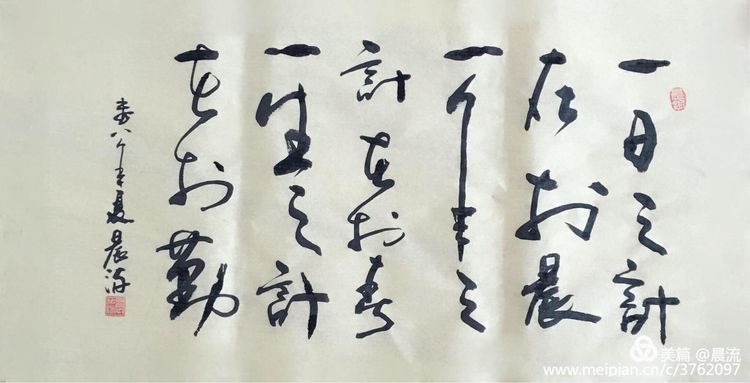 一日之計
在於晨
一年之
計在於春
一生之計
在於勤
年夏晨流
美篇 @晨流
www.meipian.cn/c/3762097